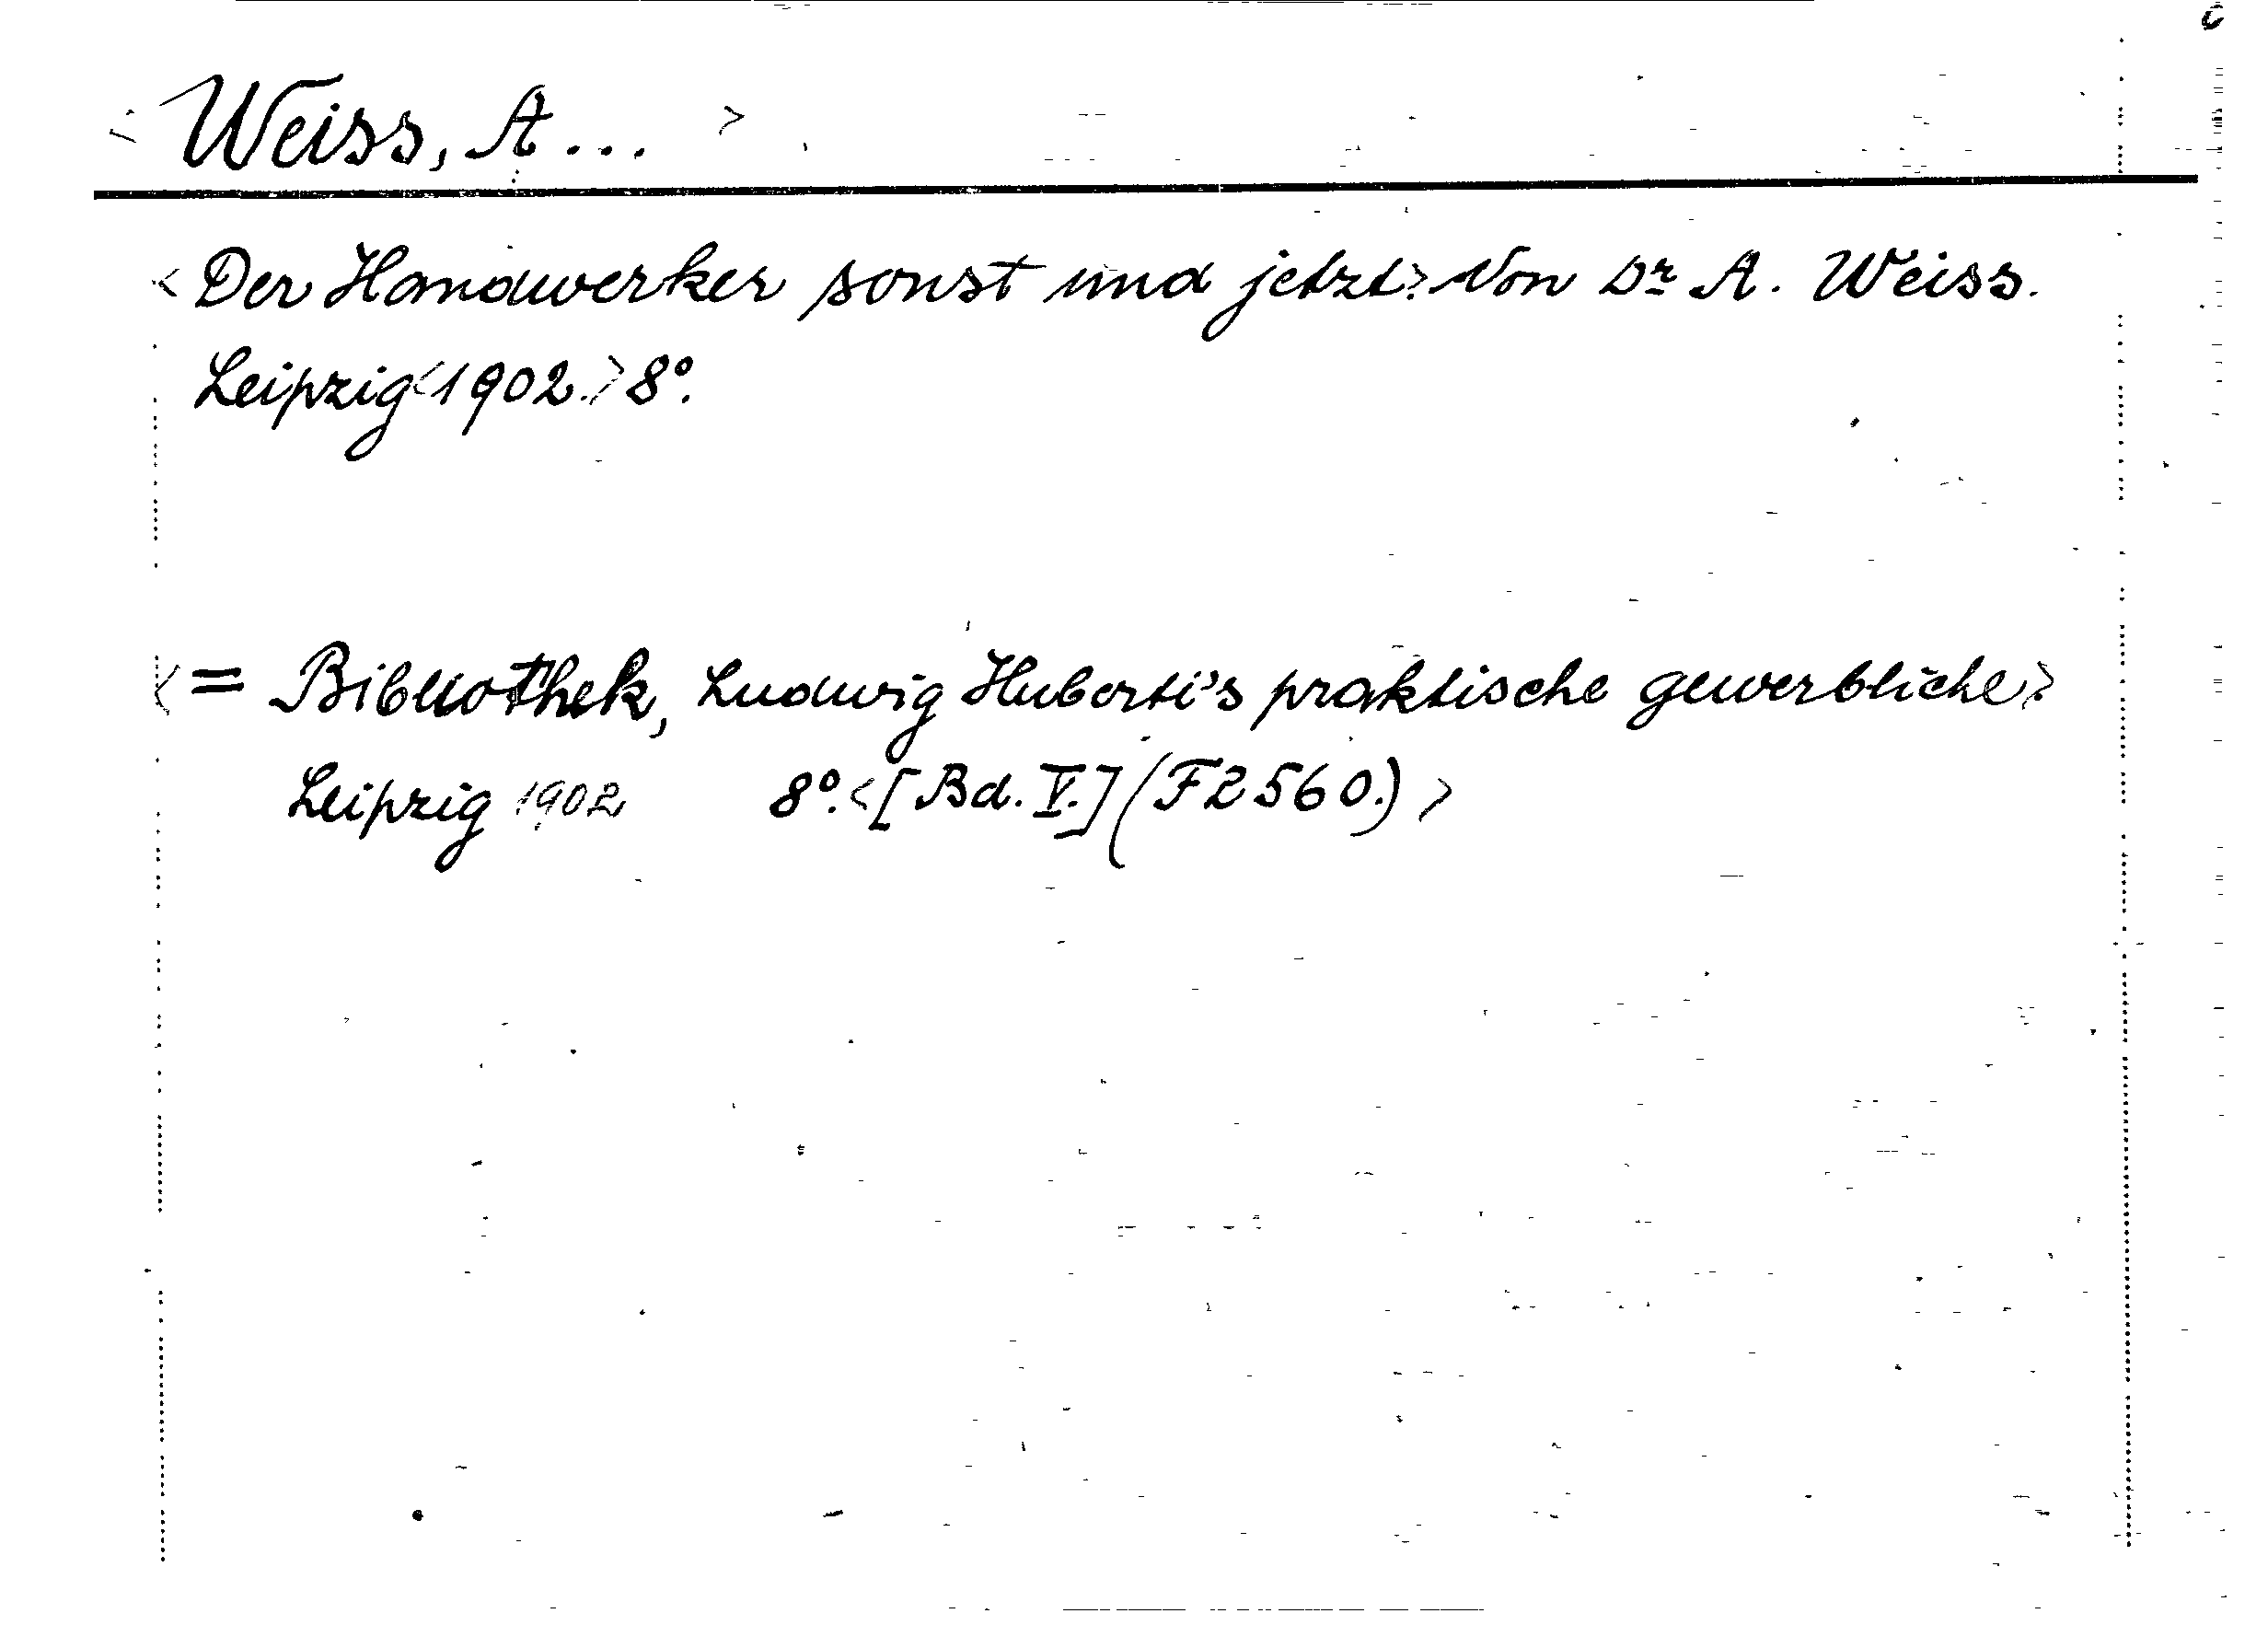 < Weiss, A... >
< Der Handwerker sonst und jetzt.> Von Dr A. Weiss.
Leipzig <1902.> 8°.
< = Bibliothek, Ludwig Huberti's praktische gewerbliche.>
Leipzig 1902 8°. <[Bd. V.] (F2560.) >